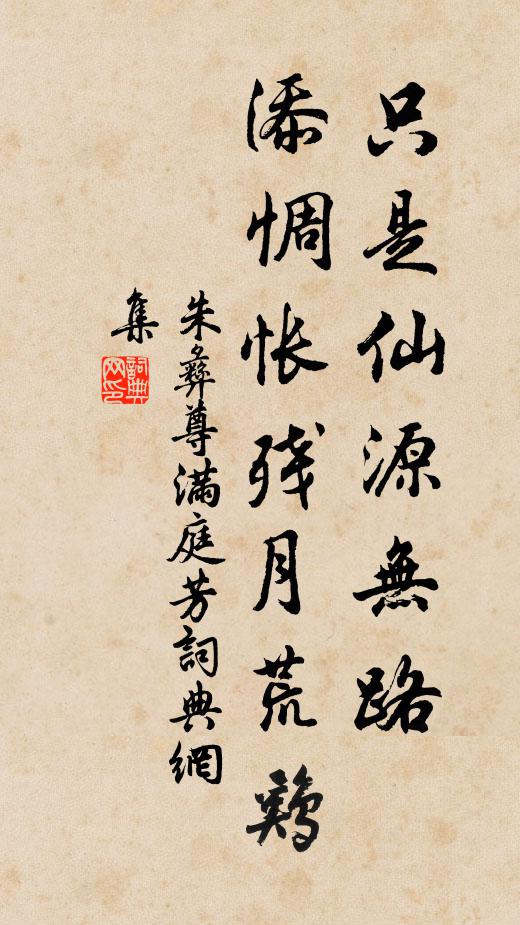 只是仙源無路
添惆怅残月荒鷄
朱彝尊满庭芳詞典網
集
詞典网印